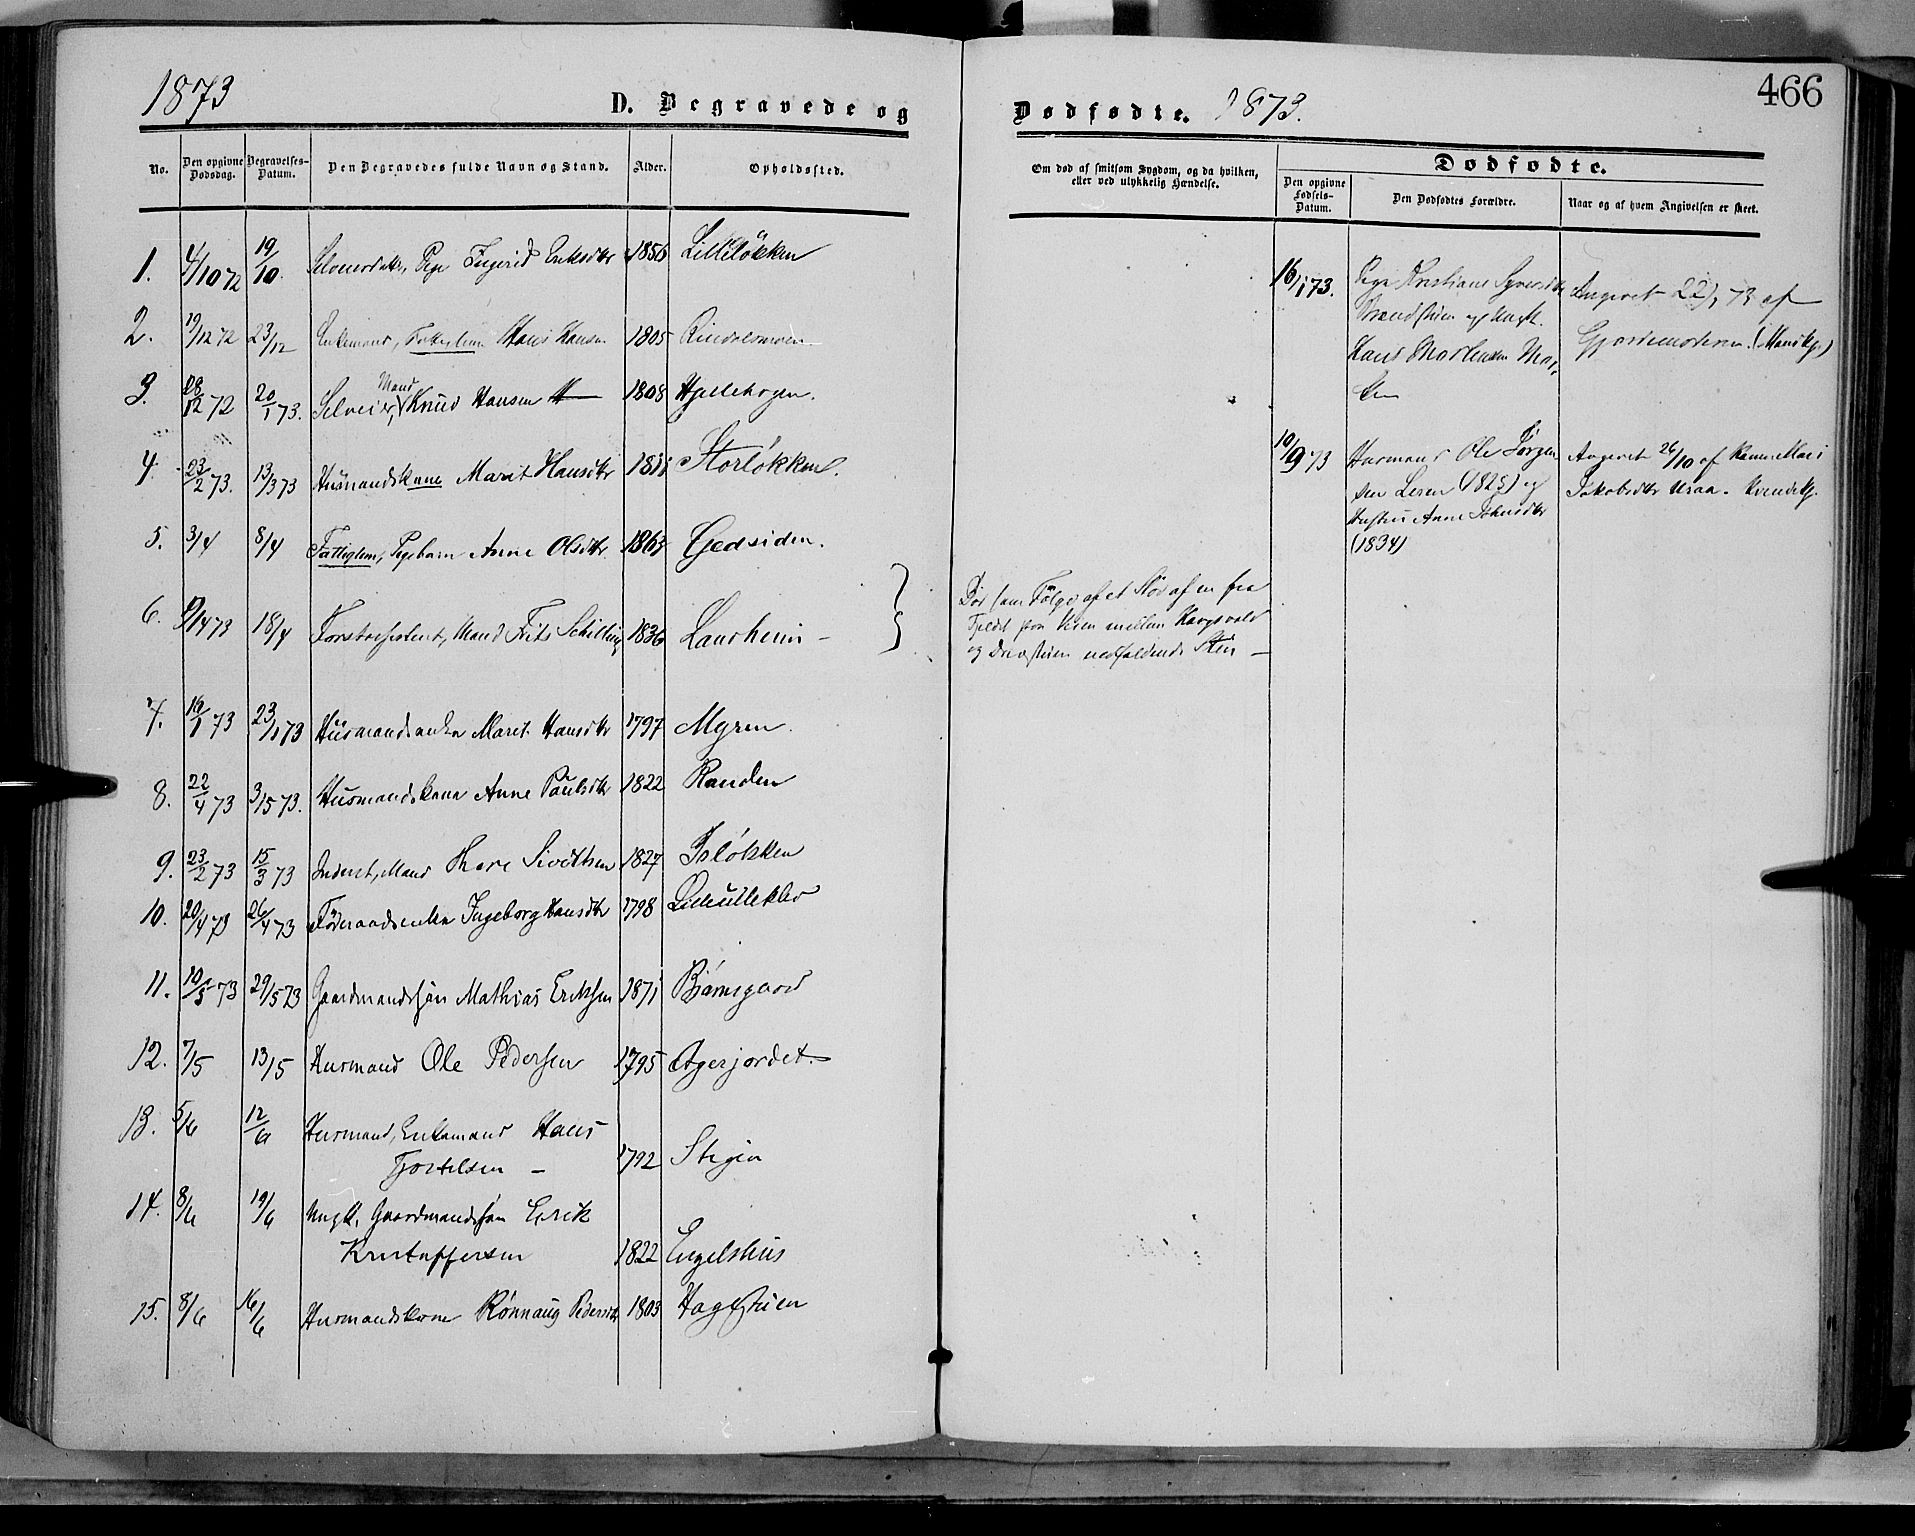 1873
D. Begravede og
Dødfødte. 1873.
466
No.
Den opgivne Dødsdag.
Begravelses-Datum.
Den Begravedes fulde Navn og Stand.
Alder.
Opholdssted.
Om død af smitsom Sygdom, og da hvilken,
eller ved ulykkelig Hændelse.
Dødfødte.
Den opgivne Fødsels-Datum.
Den Dødfødtes Forældre.
Naar og af hvem Angivelsen er skeet.
1. 4/10 72 19/10. Pige Ingerid Eriksdtr 1856 Lilleløkken
2. 19/12 72 23/12 Enkemand, Fattiglem Hans Hansen 1805 Rindalsmoen
3. 28/12 72 20/1 73. Selveier, Mand Knud Hansen 1808 Hjellehagen.
4. 23/2 73. 13/3 73 Husmandskone Marit Hansdtr 1811 Storløkken.
5. 3/4 8/4 Fattiglem, Pigebarn Anne Olsdtr 1863 Gedsiden.
6. 9/4 73 18/4 Forstassistent, Mand Frits Schilling 1836 Laurheim -
7. 16/1 73 23/1 73 Husmandsenke Marit Hansdtr 1797 Myren.
8. 22/4 73 3/5 73. Husmandskone Anne Paulsdtr 1822 Randen
9. 23/2 73 15/3 73 Inderst, Mand Thore Sivertsen 1827 Isløkken
10. 20/4 73 26/4 73 Føderaadsenke Ingeborg Hansdtr 1798 Lilleulleklev
11. 10/5 73 29/5 73 Gaardmandssøn Mathias Eriksen 1871 Bjørnsgaard
12. 7/5 13/5 Husmand Ole Pedersen 1795 Agerjordet.
13. 5/6 12/6 Husmand, Enkemand Hans
Tjostelsen - 1792 Stigen
14. 8/6 19/6 Ungk. Gaardmandssøn Erik
Kristoffersen 1822 Engelshus
15. 8/6 16/6 Husmandskone Rønnaug Pedersdtr 1803 Hagestuen
Død som Følge af et Stød af en fra
Fjeldet paa Veien mellem
og nedfaldende Sten -
16/1 73. Pige Kristiane Syversdtr
Brændstuen og Ungk.
Hans Mortensen Mo-
en
Angivet 22/1 73 af
Gjordemoderen. (Mandkj.)
10/9 73 Husmand Ole Jørgen-
sen Leren (1825) og
Hustru Anne Johnsdtr
(1834)
Angivet 26/10 af Kone Mari
Jakobsdtr Uraa. Kvindekj.